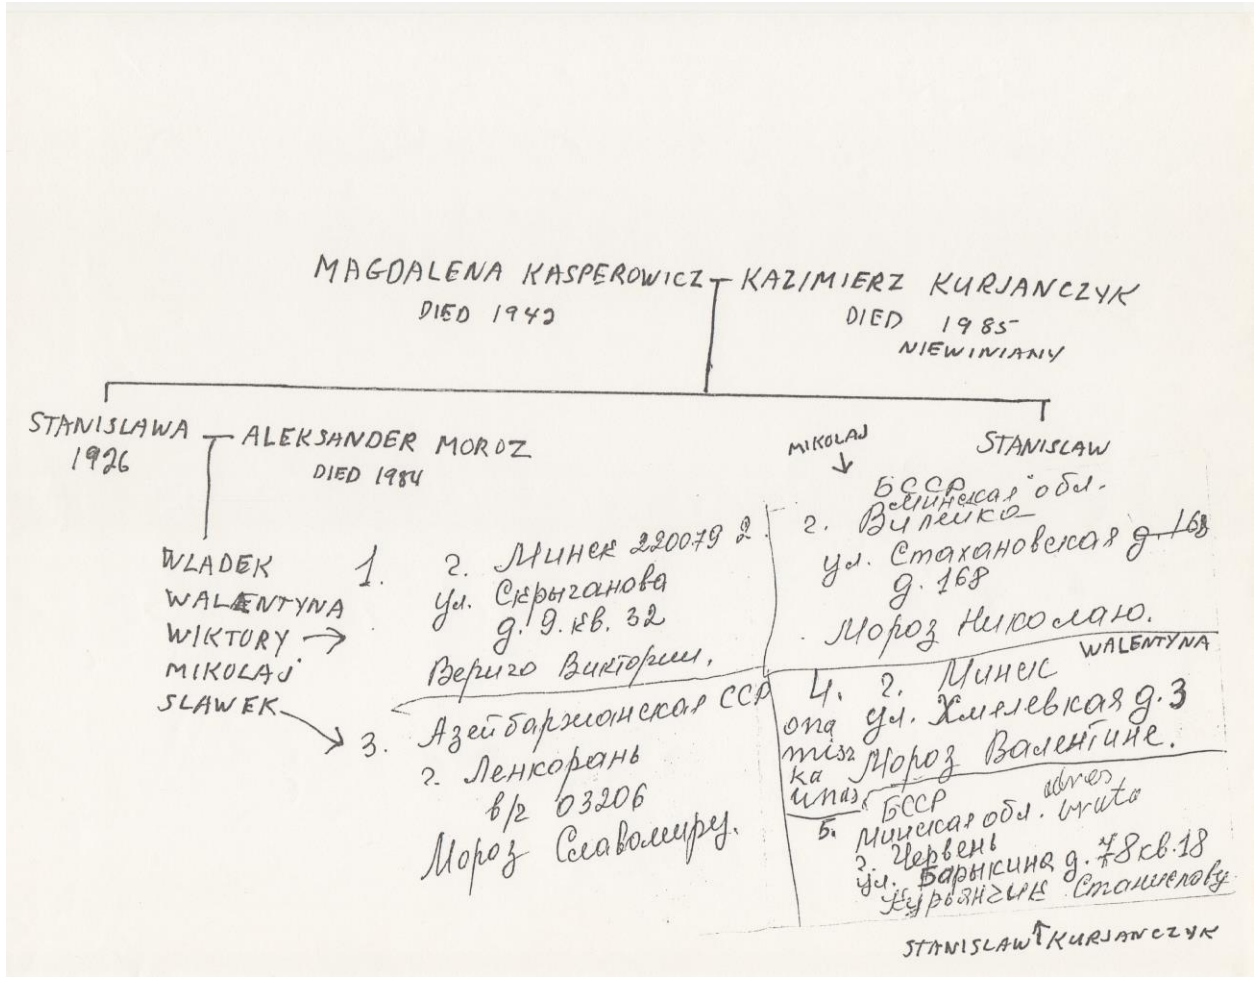 MAGDALENA KASPEROWICZ - KAZIMIERZ KURJANCZYK
DIED 1942
DIED 1985
NIEWINIANY
STANISLAWA - ALEKSANDER MOROZ
1926
DIED 1984
STANISLAW
WLADEK
WALENTYNA
WIKTORY →
MIKOLAJ
SLAWEK →
1. г. Минск 220079 2
ул. Скрыганова
д. 9. кв. 32
Вериго Виктории.
MIKOLAJ
↓
БССР
Минская обл.
г. Вилейка
ул. Стахановская д. 168
д. 168
Мороз Николаю.
3. Азейбаржианская ССР
г. Ленкорань
в/г 03206
Мороз Славомиру.
WALENTYNA
4. г. Минск
ул. Хмелевкая д. 3
Мороз Валентине.
ona
misz
ka
unas
5. БССР
adres
brata
Минская обл.
г. Червень
ул. Барыкина д. 8 кв. 18
Курьянчик Станиславу
STANISLAW ↑ KURJANCZYK